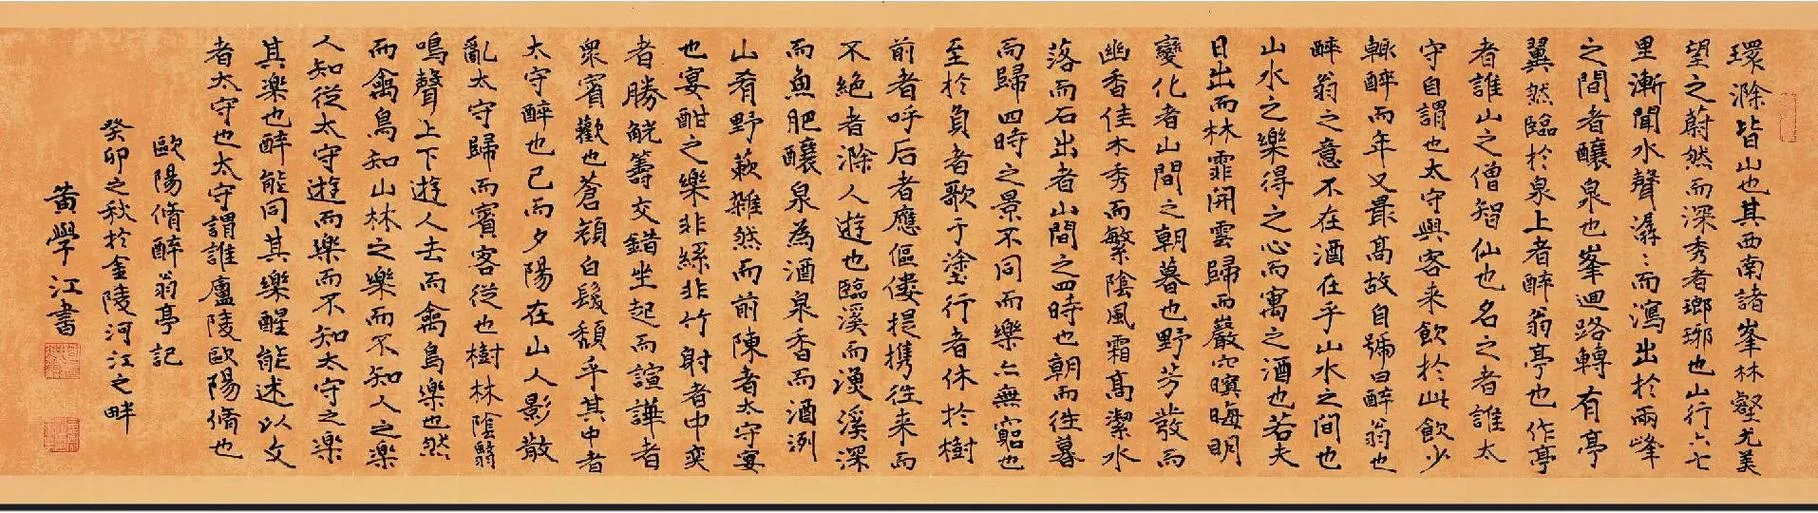 環滁皆山也其西南諸峯林壑尤美
望之蔚然而深秀者瑯琊也山行六七
里漸聞水聲潺〻而瀉出於兩峰
之間者釀泉也峯迴路轉有亭
翼然臨於泉上者醉翁亭也作亭
者誰山之僧智仙也名之者誰太
守自謂也太守與客来飲於此飲少
輒醉而年又最高故自號曰醉翁也
醉翁之意不在酒在乎山水之間也
山水之樂得之心而寓之酒也若夫
日出而林霏開雲歸而巖穴暝晦明
變化者山間之朝暮也野芳發而
幽香佳木秀而繁陰風霜高潔水
落而石出者山間之四時也朝而往暮
而歸四時之景不同而樂亦無窮也
至於負者歌于塗行者休於樹
前者呼后者應傴僂提携往来而
不絶者滁人遊也臨溪而漁溪深
而魚肥釀泉為酒泉香而酒洌
山肴野蔌雜然而前陳者太守宴
也宴酣之樂非絲非竹射者中奕
者勝觥籌交錯坐起而諠譁者
衆賓歡也蒼顔白髮頹乎其中者
太守醉也已而夕陽在山人影散
亂太守歸而賓客從也樹林陰翳
鳴聲上下遊人去而禽鳥樂也然
而禽鳥知山林之樂而不知人之樂
人知從太守遊而樂而不知太守之楽
其楽也醉能同其樂醒能述以文
者太守也太守謂誰廬陵歐陽脩也
歐陽脩醉翁亭記
癸卯之秋於金陵河江之畔
黄學江書